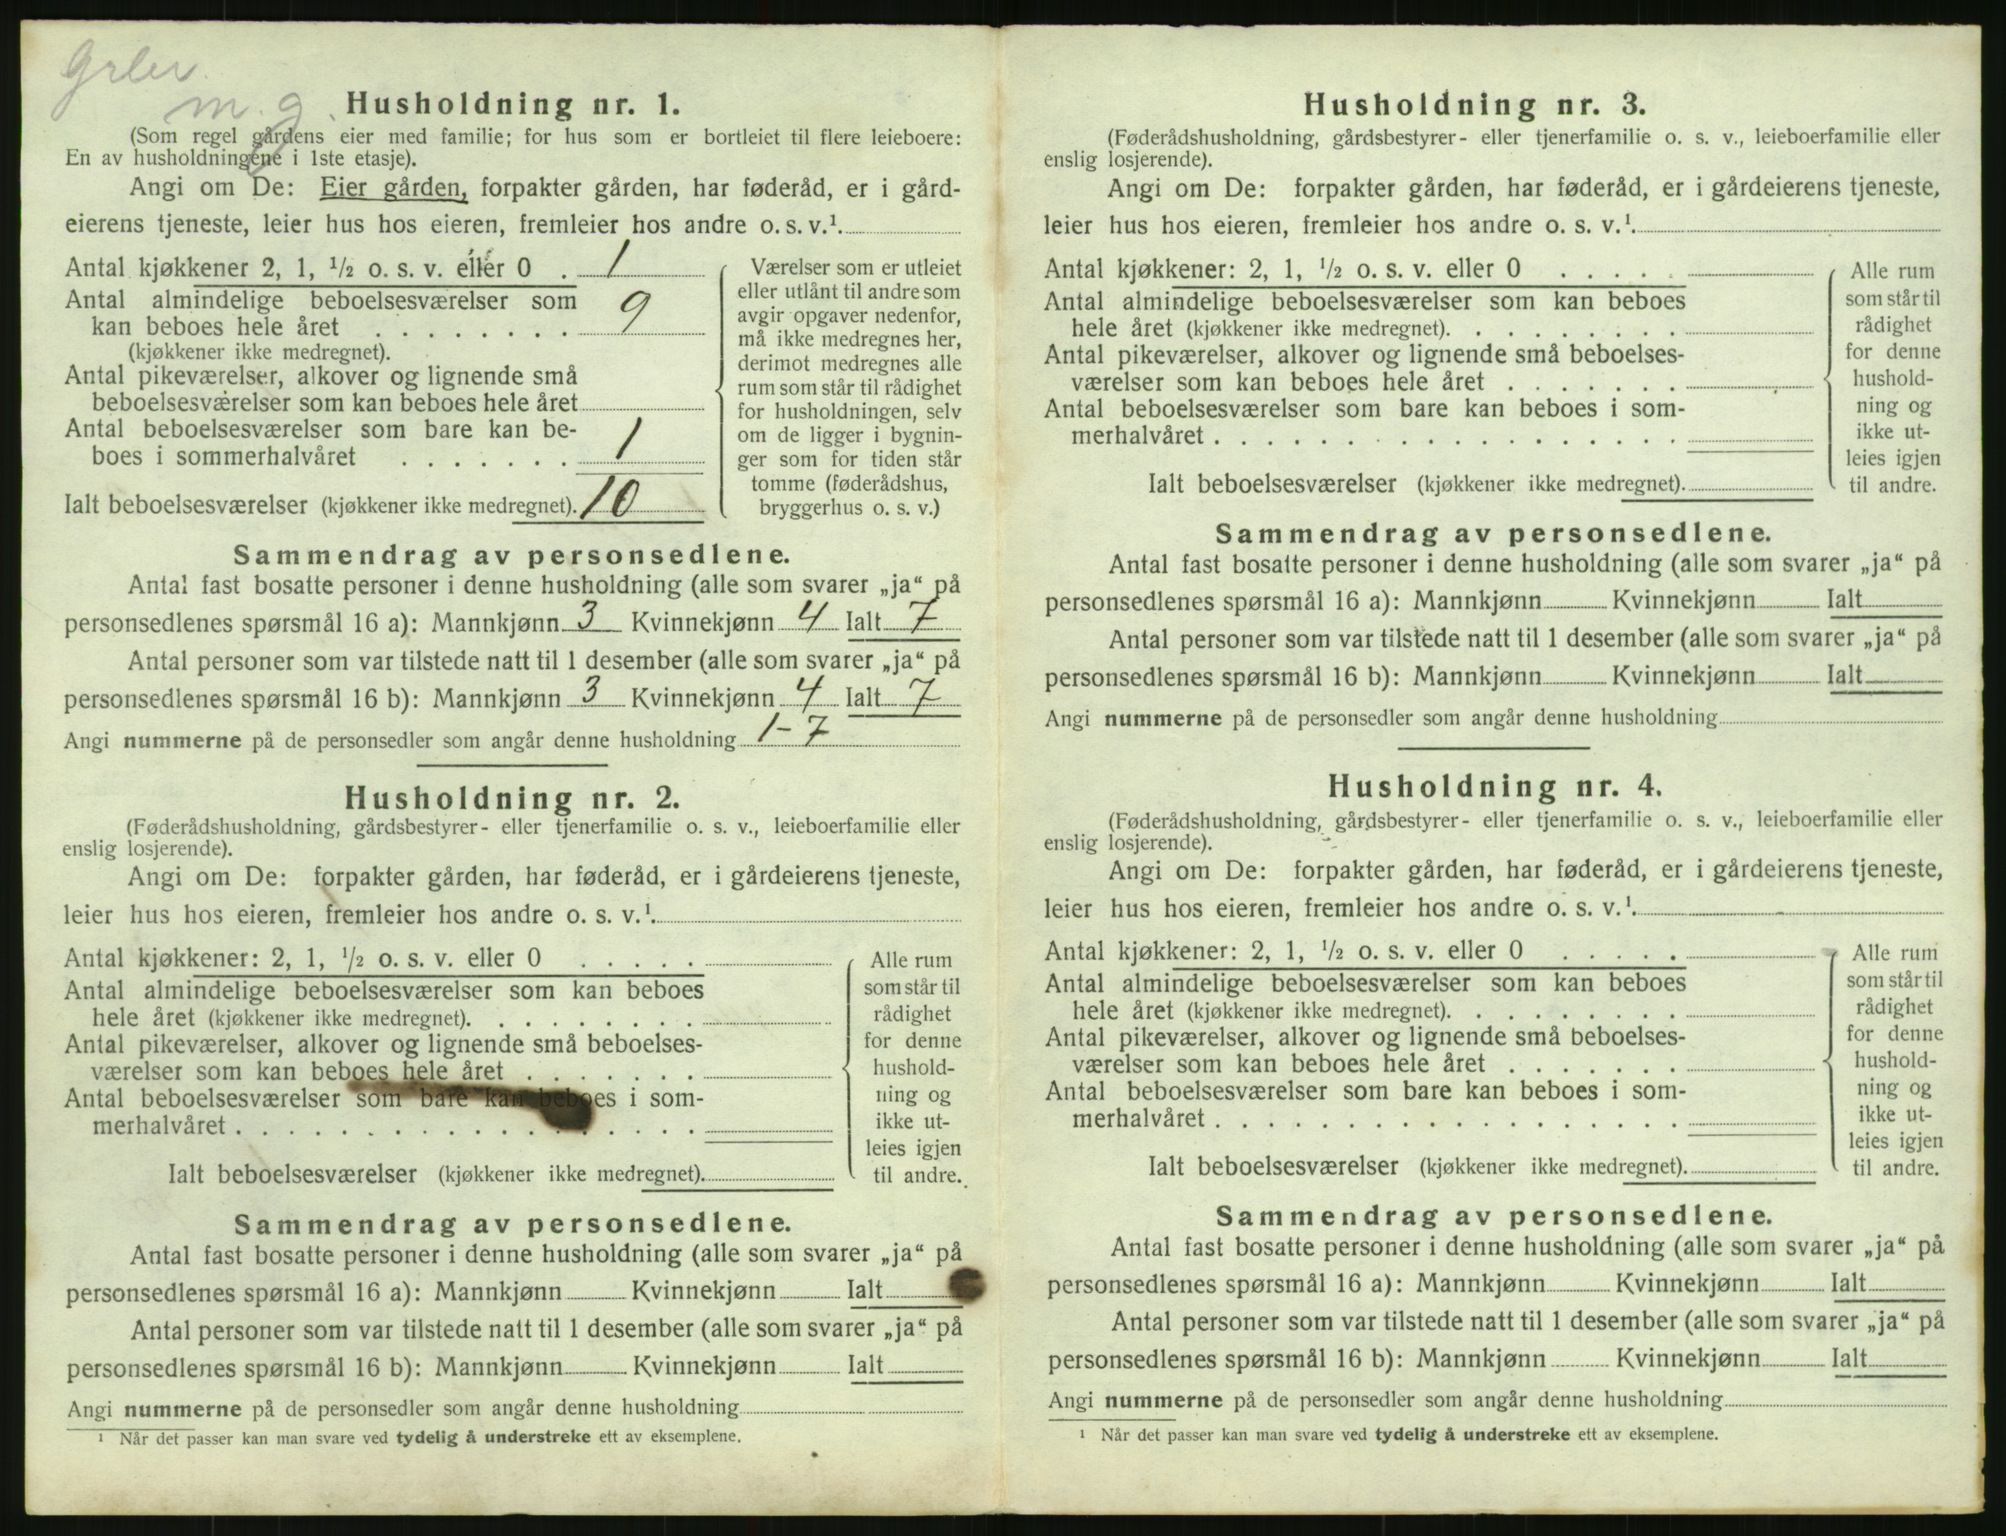 m. g.
Husholdning nr. 1.
(Som regel gårdens eier med familie; for hus som er bortleiet til flere leieboere:
En av husholdningene i 1ste etasje).
Angi om De: Eier gården, forpakter gården, har føderåd, er i gård-
eierens tjeneste, leier hus hos eieren, fremleier hos andre o. s. v.¹.
Antal kjøkkener 2, 1, ½ o. s. v. eller 0 . 1
Antal almindelige beboelsesværelser som
kan beboes hele året . . . . . . . 9
(kjøkkener ikke medregnet).
Antal pikeværelser, alkover og lignende små
beboelsesværelser som kan beboes hele året
Antal beboelsesværelser som bare kan be-
boes i sommerhalvåret . . . . . . . 1
Ialt beboelsesværelser (kjøkkener ikke medregnet). 10
Værelser som er utleiet
eller utlånt til andre som
avgir opgaver nedenfor,
må ikke medregnes her,
derimot medregnes alle
rum som står til rådighet
for husholdningen, selv
om de ligger i bygnin-
ger som for tiden står
tomme (føderådshus,
bryggerhus o. s. v.)
Sammendrag av personsedlene.
Antal fast bosatte personer i denne husholdning (alle som svarer „ja“ på
personsedlenes spørsmål 16 a): Mannkjønn 3 Kvinnekjønn 4 Ialt 7
Antal personer som var tilstede natt til 1 desember (alle som svarer „ja“ på
personsedlenes spørsmål 16 b): Mannkjønn 3 Kvinnekjønn 4 Ialt 7
Angi nummerne på de personsedler som angår denne husholdning 1-7
Husholdning nr. 2.
(Føderådshusholdning, gårdsbestyrer- eller tjenerfamilie o. s. v., leieboerfamilie eller
enslig losjerende).
Angi om De: forpakter gården, har føderåd, er i gårdeierens tjeneste,
leier hus hos eieren, fremleier hos andre o. s. v.¹.
Antal kjøkkener: 2, 1, ½ o. s. v. eller 0 . . . . .
Antal almindelige beboelsesværelser som kan beboes
hele året (kjøkkener ikke medregnet). . . . . . . .
Antal pikeværelser, alkover og lignende små beboelses-
værelser som kan beboes hele året . . . . . . .
Antal beboelsesværelser som bare kan beboes i som-
merhalvåret . . . . . . . . . . . . . . . . .
Ialt beboelsesværelser (kjøkkener ikke medregnet).
Alle rum
som står til
rådighet
for denne
hushold-
ning og
ikke ut-
leies igjen
til andre.
Sammendrag av personsedlene.
Antal fast bosatte personer i denne husholdning (alle som svarer „ja“ på
personsedlenes spørsmål 16 a): Mannkjønn Kvinnekjønn Ialt
Antal personer som var tilstede natt til 1 desember (alle som svarer „ja“ på
personsedlenes spørsmål 16 b): Mannkjønn Kvinnekjønn Ialt
Angi nummerne på de personsedler som angår denne husholdning
¹ Når det passer kan man svare ved tydelig å understreke ett av eksemplene.
Husholdning nr. 3.
(Føderådshusholdning, gårdsbestyrer- eller tjenerfamilie o. s. v., leieboerfamilie eller
enslig losjerende).
Angi om De: forpakter gården, har føderåd, er i gårdeierens tjeneste,
leier hus hos eieren, fremleier hos andre o. s. v.¹.
Antal kjøkkener: 2, 1, ½ o. s. v. eller 0 . . . . .
Antal almindelige beboelsesværelser som kan beboes
hele året (kjøkkener ikke medregnet). . . . . . . .
Antal pikeværelser, alkover og lignende små beboelses-
værelser som kan beboes hele året . . . . . . .
Antal beboelsesværelser som bare kan beboes i som-
merhalvåret . . . . . . . . . . . . . . . . .
Ialt beboelsesværelser (kjøkkener ikke medregnet).
Alle rum
som står til
rådighet
for denne
hushold-
ning og
ikke ut-
leies igjen
til andre.
Sammendrag av personsedlene.
Antal fast bosatte personer i denne husholdning (alle som svarer „ja“ på
personsedlenes spørsmål 16 a): Mannkjønn Kvinnekjønn Ialt
Antal personer som var tilstede natt til 1 desember (alle som svarer „ja“ på
personsedlenes spørsmål 16 b): Mannkjønn Kvinnekjønn Ialt
Angi nummerne på de personsedler som angår denne husholdning
Husholdning nr. 4.
(Føderådshusholdning, gårdsbestyrer- eller tjenerfamilie o. s. v., leieboerfamilie eller
enslig losjerende).
Angi om De: forpakter gården, har føderåd, er i gårdeierens tjeneste,
leier hus hos eieren, fremleier hos andre o. s. v.¹.
Antal kjøkkener: 2, 1, ½ o. s. v. eller 0 . . . . .
Antal almindelige beboelsesværelser som kan beboes
hele året (kjøkkener ikke medregnet). . . . . . . .
Antal pikeværelser, alkover og lignende små beboelses-
værelser som kan beboes hele året . . . . . . .
Antal beboelsesværelser som bare kan beboes i som-
merhalvåret . . . . . . . . . . . . . . . . .
Ialt beboelsesværelser (kjøkkener ikke medregnet).
Alle rum
som står til
rådighet
for denne
hushold-
ning og
ikke ut-
leies igjen
til andre.
Sammendrag av personsedlene.
Antal fast bosatte personer i denne husholdning (alle som svarer „ja“ på
personsedlenes spørsmål 16 a): Mannkjønn Kvinnekjønn Ialt
Antal personer som var tilstede natt til 1 desember (alle som svarer „ja“ på
personsedlenes spørsmål 16 b): Mannkjønn Kvinnekjønn Ialt
Angi nummerne på de personsedler som angår denne husholdning
¹ Når det passer kan man svare ved tydelig å understreke ett av eksemplene.